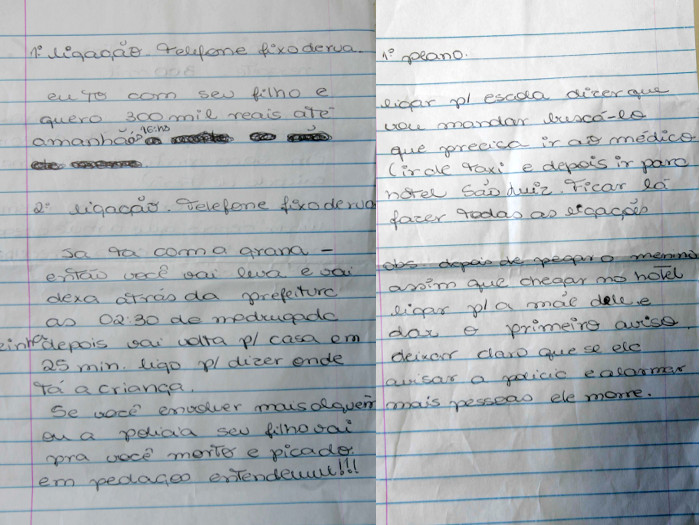 1º ligação. Telefone fixo derva.
eu to com seu filho e
quero 300 mil reais até
amanhã as 16:hs
2º ligação. Telefone fixo derva
Ja ta com a grana -
então você vai leva e vai
dexa atrás da prefeitura
as 02:30 de madrugada
depois vai volta p/ casa em
25 min. ligo p/ dizer onde
tá a criança.
Se você envolver mais alguém
ou a policia seu filho vai
pra você morto e picado
em pedaços entendeuuuu!!!
1º plano.
ligar p/ escola dizer que
vou mandar buscá-lo
que precisa ir ao médico
(ir de taxi e depois ir para
hotel São Luiz. Ficar lá
fazer todas as ligações
obs depois de pegar o menino
assim que chegar no hotel
ligar p/ a mãe dele e
dar o primeiro aviso
deixar claro que se ele
avisar a policia e alarmar
mais pessoas ele morre.